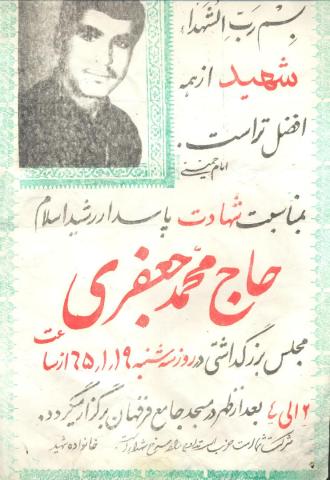 بسم رب الشهداء
شهید از همه
افضل تر است.
امام خمینی
بمناسبت شهادت پاسدار رشید اسلام
حاج محمد جعفری
مجلس بزرگداشتی در روز سه شنبه ۶۵٫۱٫۱۹ از ساعت
۲ الی ۴ بعد از ظهر در مسجد جامع فرقهان برگزار میگردد.
شرکت شما در خانواده شهید